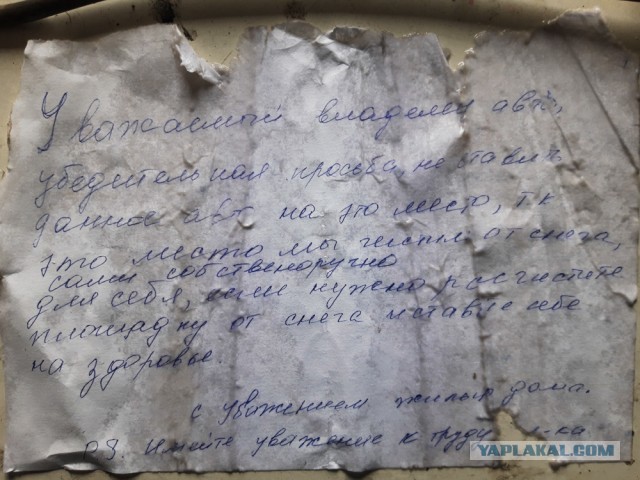 Уважаемый владелец авто,
убедительная просьба, не ставить
данное авт на это место, т.к
это место мы чистим от снега,
сами собственоручно
для себя, если нужно расчистите
площадку от снега и ставте себе
на здоровье.
с уважением жильцы дома.
P.S. Имейте уважение к труду
YAPLAKAL.COM